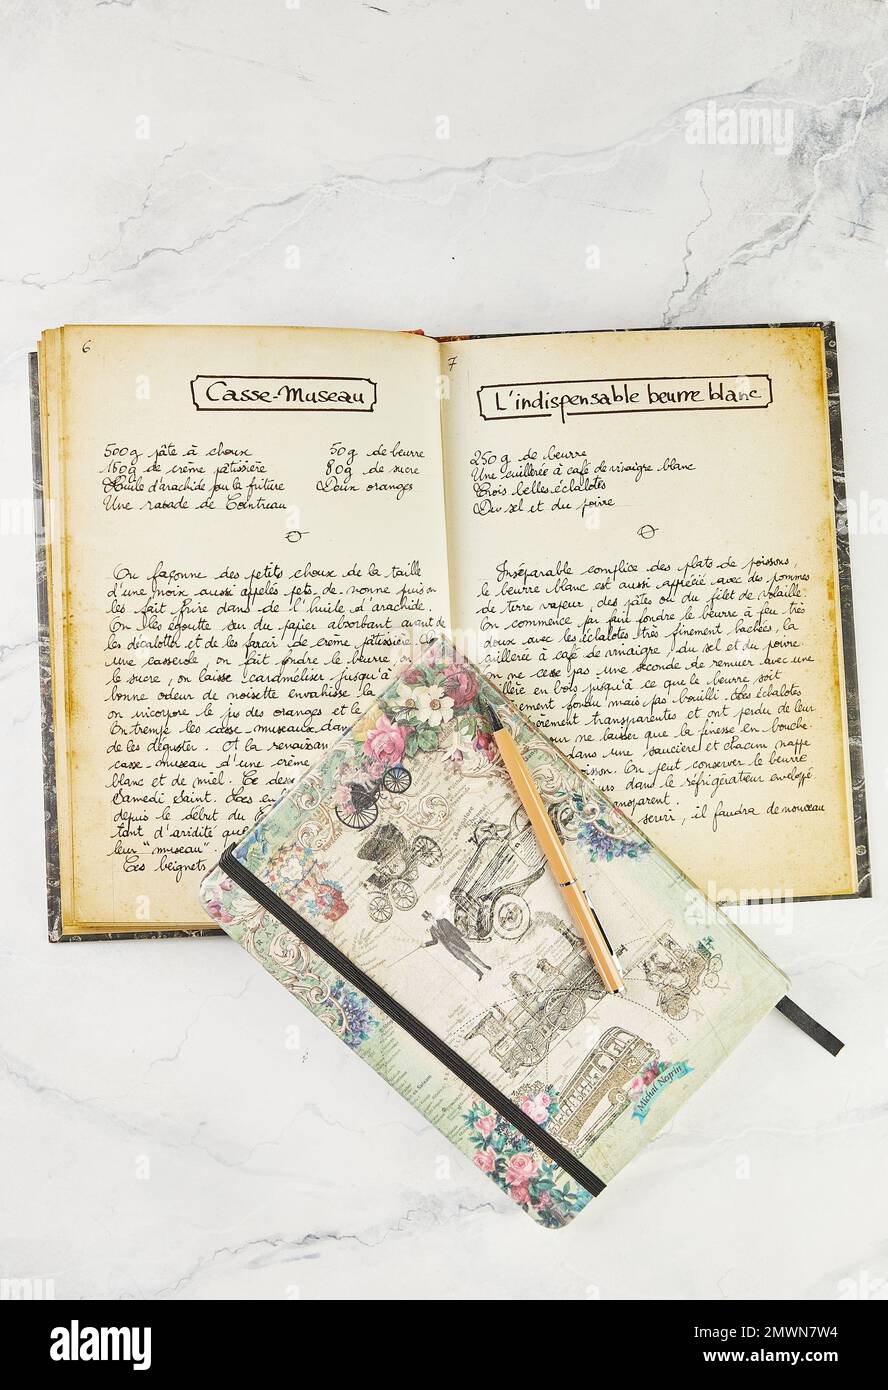 6
Casse-Museau
500g pâte à choux
150g de crème pâtissière
Huile d'arachide pour la friture
Une rasade de Cointreau
50g de beurre
80g de sucre
Deux oranges
On façonne des petits choux de la taille
d'une noix aussi appelés pets-de-nonne puis on
les fait frire dans de l'huile d'arachide.
On les égoutte sur du papier absorbant avant de
les décalotter et de les farcir de crème pâtissière.
une casserole, on fait fondre le beurre, on
le sucre, on laisse caraméliser jusqu'à
bonne odeur de noisette envahisse la
on incorpore le jus des oranges et le
On trempe les casse-museaux dans
de les déguster. A la renaissan
casse-museau d'une crème
blanc et de miel. Ce dess
Samedi Saint. Les en
depuis le début du
tant d'aridité que
leur "museau".
Ces beignets
7
L'indispensable beurre blanc
250g de beurre
Une cuillerée à café de vinaigre blanc
Trois belles échalotes
Du sel et du poivre
Inséparable complice des plats de poissons,
le beurre blanc est aussi apprécié avec des pommes
de terre vapeur, des pâtes ou du filet de volaille.
On commence par faire fondre le beurre à feu très
doux avec les échalotes très finement hachées, la
cuillerée à café de vinaigre, du sel et du poivre.
On ne cesse pas une seconde de remuer avec une
cuillère en bois jusqu'à ce que le beurre soit
ement fondu mais pas bouilli. Les échalotes
èrement transparentes et ont perdu de leur
our ne laisser que la finesse en bouche.
dans une saucière et chacun nappe
oisson. On peut conserver le beurre
urs dans le réfrigérateur enveloppé
ansparent.
servir, il faudra de nouveau
Michal Negrin
alamy
a
alamy
Image ID: 2MWN7W4
www.alamy.com